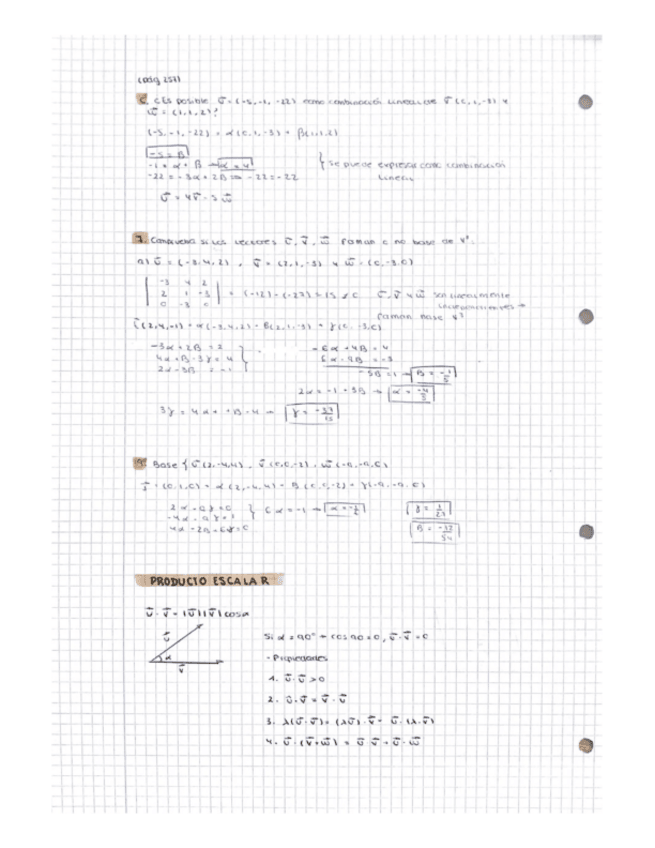 (pág 257)
6. ¿Es posible u⃗ = (-5, -1, -22) como combinación lineal de v⃗ (0, 1, -3) y
w⃗ = (1, 1, 2)?
(-5, -1, -22) = α(0, 1, -3) + β(1, 1, 2)
-5 = β
-1 = α + β → α = 4
-22 = -3α + 2β ⇒ -22 = -22
} se puede expresar como combinación
lineal
u⃗ = 4v⃗ - 5w⃗
7. Comprueba si los vectores u⃗, v⃗, w⃗ forman o no base de V³.
a) u⃗ = (-3, 4, 2), v⃗ = (2, 1, -3) y w⃗ = (0, -3, 0)
| -3 4 2 |
| 2 1 -3 | = (-12) - (-27) = 15 ≠ 0 u⃗, v⃗ y w⃗ son linealmente
| 0 -3 0 | independientes →
forman base V³
-3α + 2β = 2
4α + β - 3γ = 4
2α - 3β = -1
-6α + 4β = 4
6α - 9β = -3
-5β = 1 → β = -1/5
2α = -1 + 3β → α = -4/5
9. Base { u⃗ (2, -4, 4), v⃗ (0, 0, -2),
6α = -1 →
PRODUCTO ESCALAR
u⃗ · v⃗ = |u⃗| |v⃗| cos α
u⃗
α
v⃗
Si α = 90° → cos 90 = 0, u⃗ · v⃗ = 0
- Propiedades
1. u⃗ · u⃗ > 0
2. u⃗ · v⃗ = v⃗ · u⃗
3. λ(u⃗ · v⃗) = (λu⃗) · v⃗ = u⃗ · (λ · v⃗)
4. u⃗ · (v⃗ + w⃗) = u⃗ · v⃗ + u⃗ · w⃗